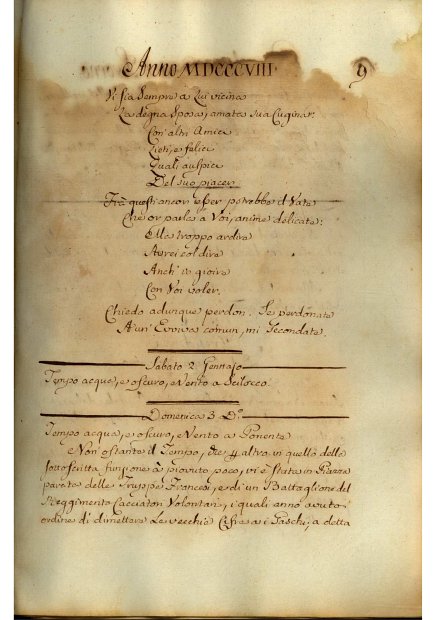 Anno MDCCCVIII 9
Vi sia sempre a Lui vicina
La degna Sposa, amata sua Cugina:
Con altri Amici
Lieti, e felici
Quali auspica
Del suo piacer
Frà questi ancor esser potrebbe il Vate
Che or parla a Voi, anime delicate:
Ma troppo ardire
Avrei col dire
Anch' io gioire
Con Voi voler.
Chiedo adunque perdon. Se perdonate
A un' Evviva comun, mi secondate.
Sabato 2 Gennajo
Tempo acqua, e oscuro, e Vento a Scilocco.
Domenica 3 Do
Tempo acqua, e oscuro, e Vento a Ponente
Non ostante il Tempo, che altro in quello della
sottoscritta funzione à piovuto poco, vi è stata in Piazza
parata delle Truppe Francesi, e di un Battaglione del
Reggimento Cacciatori Volontari, i quali anno avuto
ordine di dimettere Le vecchie Cifre a i Caschi, a detta